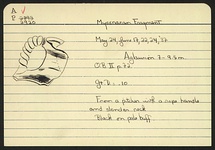 A
P 2993
2920
Mycenaean Fragment
May 29, June 17, 22, 24, '37
7-8.5 m
O.B. II p. 72
10
From a pitcher with a rope handle
and slender neck
Black on pale buff